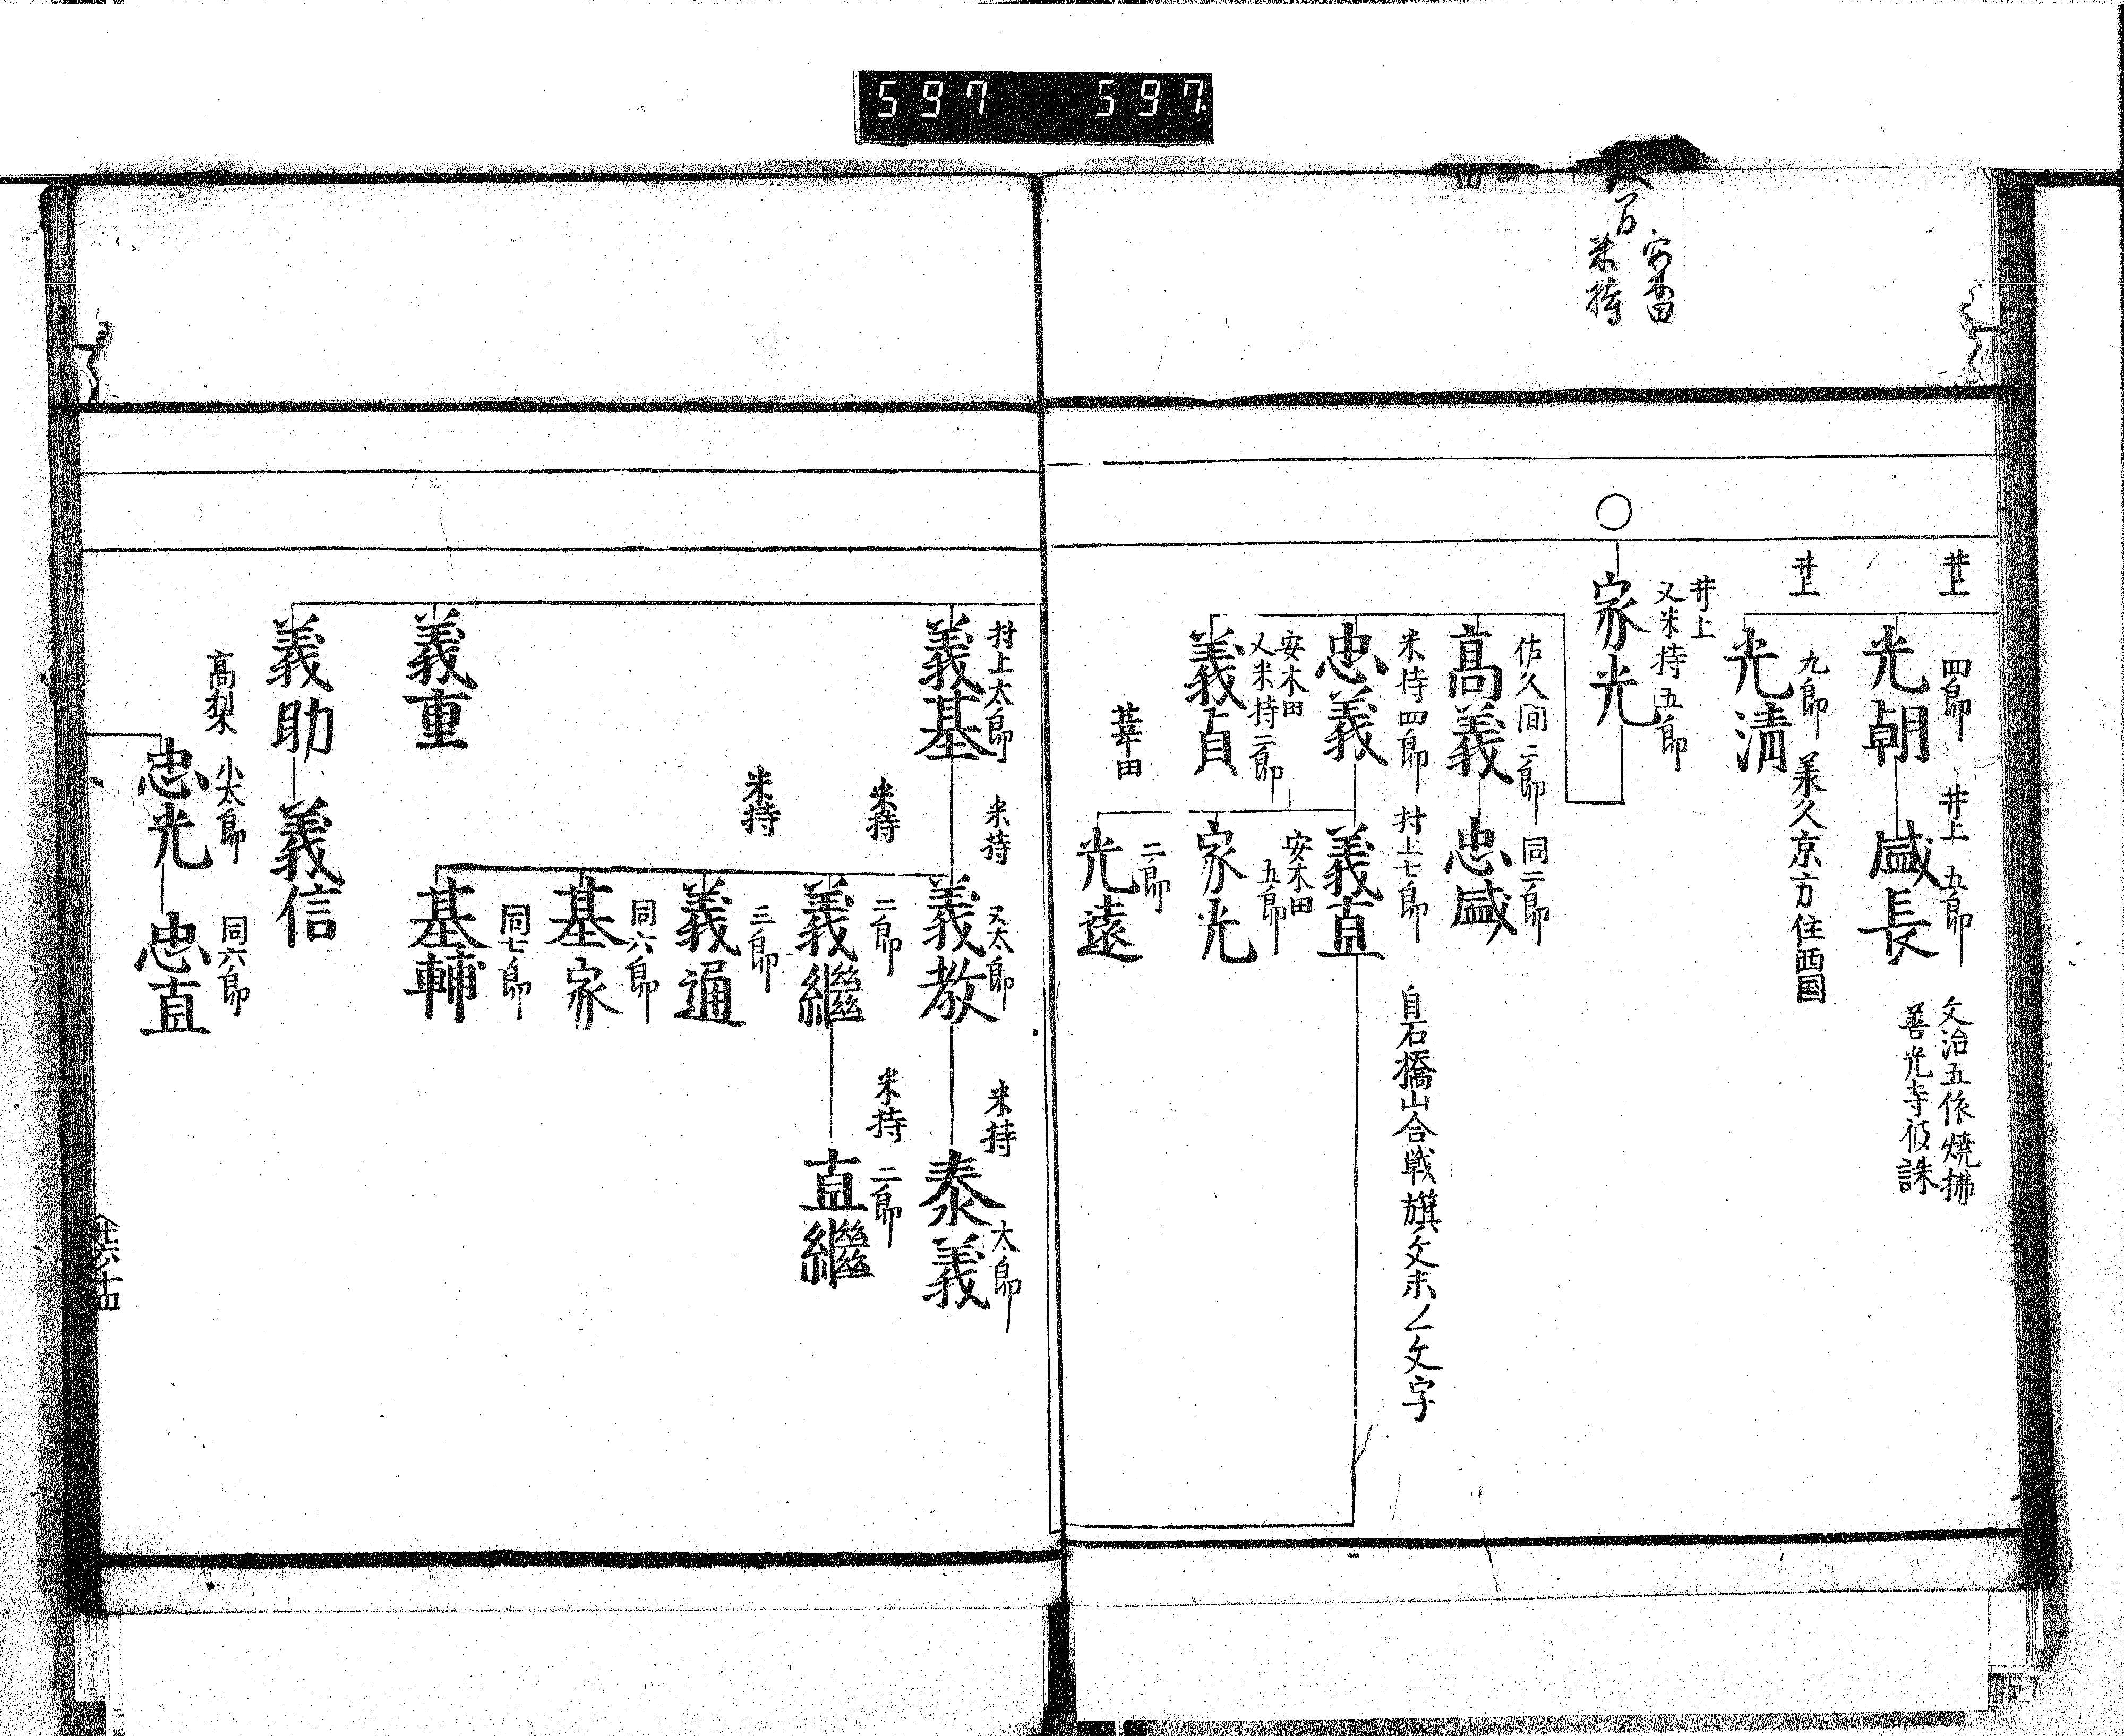 597 597
安木田
米持
井上
四郎
光朝
井上 五郎
盛長
文治五依焼拂
善光寺被誅
井上
九郎
光清
承久京方住西国
○
井上
又米持五郎
家光
佐久間二郎
高義
同二郎
忠盛
米持四郎
忠義
村上七郎
義直
自石橋山合戦旗文未〻文字
安木田
又米持二郎
義貞
安木田
五郎
家光
芋田
二郎
光遠
村上太郎
義基
米持
又太郎
義教
米持
太郎
泰義
米持
二郎
義繼
米持
二郎
直繼
米持
三郎
義通
同六郎
基家
同七郎
基輔
義重
義助
義信
高梨
小太郎
忠光
同六郎
忠直
七六十四